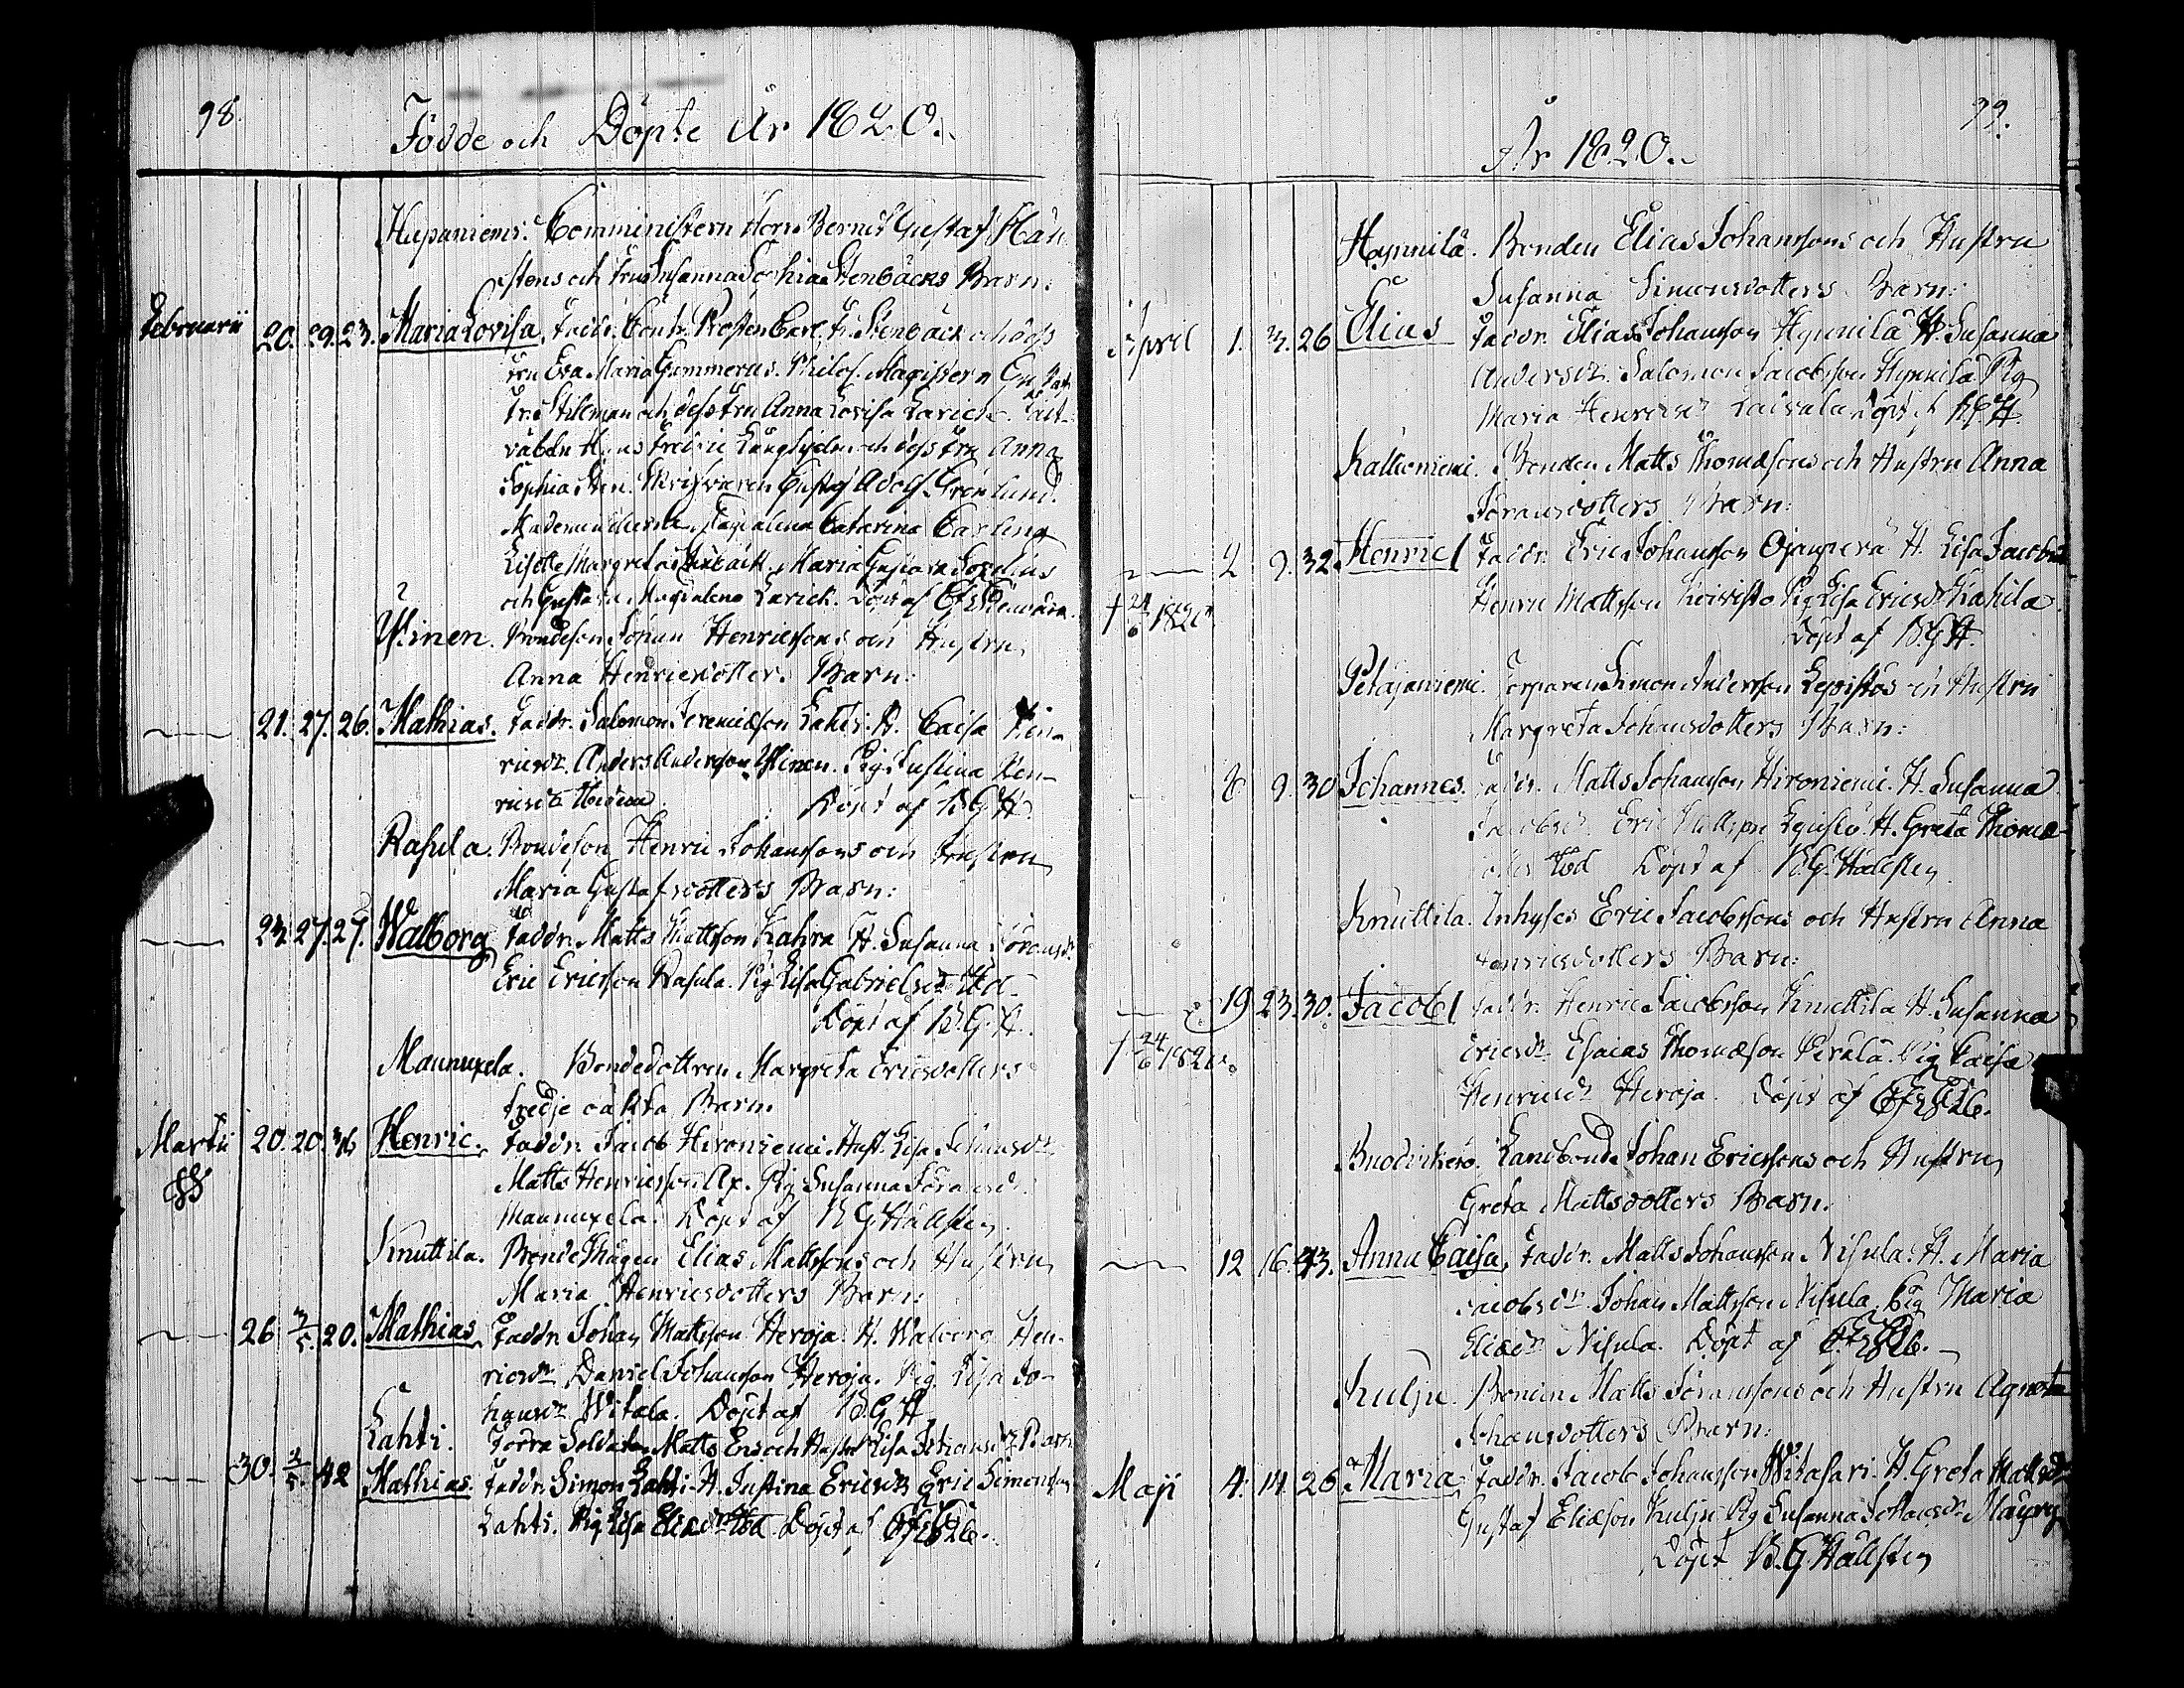 98.
Födde och Döpte År 1820.
Hupaniemi. Comministern Herr Bernd Gustaf Häll-
stens och Fru Susanna Sophia Stenbäcks Barn:
Februarii 20. 29. 23. Maria Lovisa. Faddr. Contr. Prosten Carl Fr. Stenbäck och dess
Fru Eva Maria Gummerus. Philos. Magistern
Fr. Stihlman och dess Fru Anna Lovisa Larick.
Fredric Långhjelm och dess Fru Anna
Sophia Gustaf Adolf Grönlund.
Magdalena Catarina Carling
Lisette Margreta Stenbäck, Maria Gustava
och Gustava Magdalena Larick. Döpt af
Ylinen. Bondeson Johan Henricssons och Hustru
Anna Henricsdotters Barn:
21. 27. 26. Mathias. Faddr. Salomon Jeremiæson Lahti. H. Caisa Hen-
ricsdr. Anders Andersson Ylinen. Pig. Justina Hen-
ricsdr Döpt af B.G.H.
Rasula. Bondeson Henric Johanssons och Hustru
Maria Gustafsdotters Barn:
23. 27. 27. Walborg Faddr. Matts Mattsson Kahra H. Susanna Göransdr.
Eric Ericsson Rasula. Pig Lisa Gabrielsdr ibd.
Döpt af B.G.H.
Maunuxela. Bondedottren Margreta Ericsdotters
tredje oäkta Barn.
Martii 20. 20. 36 Henric. Faddr. Jacob Hironiemi. Hust. Lisa Johansdr
Matts Henricsson Ax. Pig Susanna Göransdr
Maunuxela. Döpt af B G Hällsten
Knuttila. Bonde Mågen Elias Mattssons och Hustru
Maria Henricsdotters Barn:
26 3/5. 20. Mathias Faddr. Johan Mattsson Heroja. H. Walborg Hen-
ricsdr Daniel Johansson Heroja. Pig. Lisa Jo-
hansdr Witala. Döpt af B.G.H
Lahti. Förra Soldaten Matts Ens och Hustru Lisa Johansdrs Barn
30. 3/5. 42 Mathias. Faddr. Simon Lahti. H. Justina Ericsdr Eric Simonsson
Lahti. Pig Lisa Eliædr ibd. Döpt af
99.
År 1820.
Hynnilä. Bonden Elias Johanssons och Hustru
Susanna Simonsdotters Barn:
April 1. 3. 26 Elias Faddr. Elias Johansson Hynnilä H. Susanna
Andersdr. Salomon Jacobsson Hynnilä Pig
Maria Henricsdr Döpt af B.G.H.
Kallioniemi. Bonden Matts Thomæsons och Hustru Anna
Göransdotters Barn:
2 9. 32. Henric Faddr. Eric Johansson Ojanperä H. Lisa Jacobsdr
† 24/6 1820 Henric Mattsson Koivisto Pig Lisa Ericsdr Kahila.
Döpt af B.G.H.
Petäjäniemi. Torparen Simon Andersson Lepistös och Hustru
Margreta Johansdotters Barn:
8 9. 30 Johannes. Faddr. Matts Johansson Hironiemi. H. Susanna
Jacobsdr. Eric Mattsson H. Greta Thomæ-
ibd Döpt af B.G. Hällsten
Knuttila. Inhyses Eric Jacobssons och Hustru Anna
Henricsdotters Barn:
19 23. 30. Jacob Faddr. Henric Jacobsson Knuttila H. Susanna
† 24/6 1820. Ericsdr Esaias Thomæson Perälä. Pig Caisa
Henricsdr Heroja. Döpt af
Landbonde Johan Ericssons och Hustru
Greta Mattsdotters Barn:
12 16. 43. Anna Caisa, Faddr. Matts Johansson Nisula. H. Maria
Jacobsdr. Johan Mattsson Nisula. Pig Maria
Eliædr Nisula. Döpt af
Kulju. Bonden Matts Göranssons och Hustru Agneta
Johansdotters Barn:
Maji 4. 14. 26 Maria Faddr. Jacob Johansson Witasari. H. Greta Mattsdr
Gustaf Eliæson Kulju Pig Susanna Johansdr Maury
Döpt B.G Hällsten